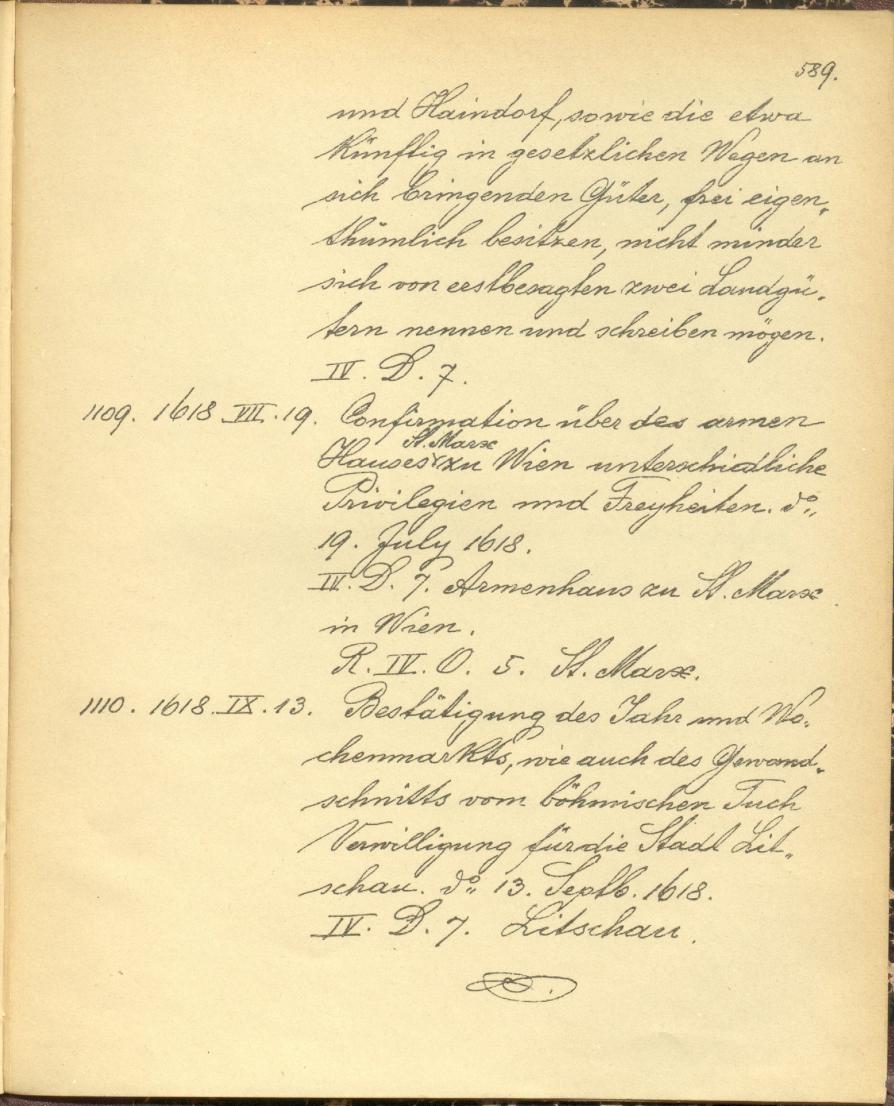 589.
und Haindorf, sowie die etwa
künftig in gesetzlichen Wegen an
sich bringenden Güter, frei eigen„
thümlich besitzen, nicht minder
sich von erstbesagten zwei Landgü„
tern nennen und schreiben mögen.
IV. D. 7.
1109. 1618. VII. 19. Confirmation über des armen
St. Marx
Hauses zu Wien unterschiedliche
Privilegien und Freyheiten. do„
19. July 1618.
IV. D. 7. Armenhaus zu St. Marx
in Wien.
R. IV. O. 5. St. Marx.
1110. 1618. IX. 13. Bestätigung des Jahr und Wo„
chenmarkts, wie auch des Gewand„
schnitts vom böhmischen Tuch
Verwilligung für die Stadt Lit„
schau. do„ 13. Septb. 1618.
IV. D. 7. Litschau.